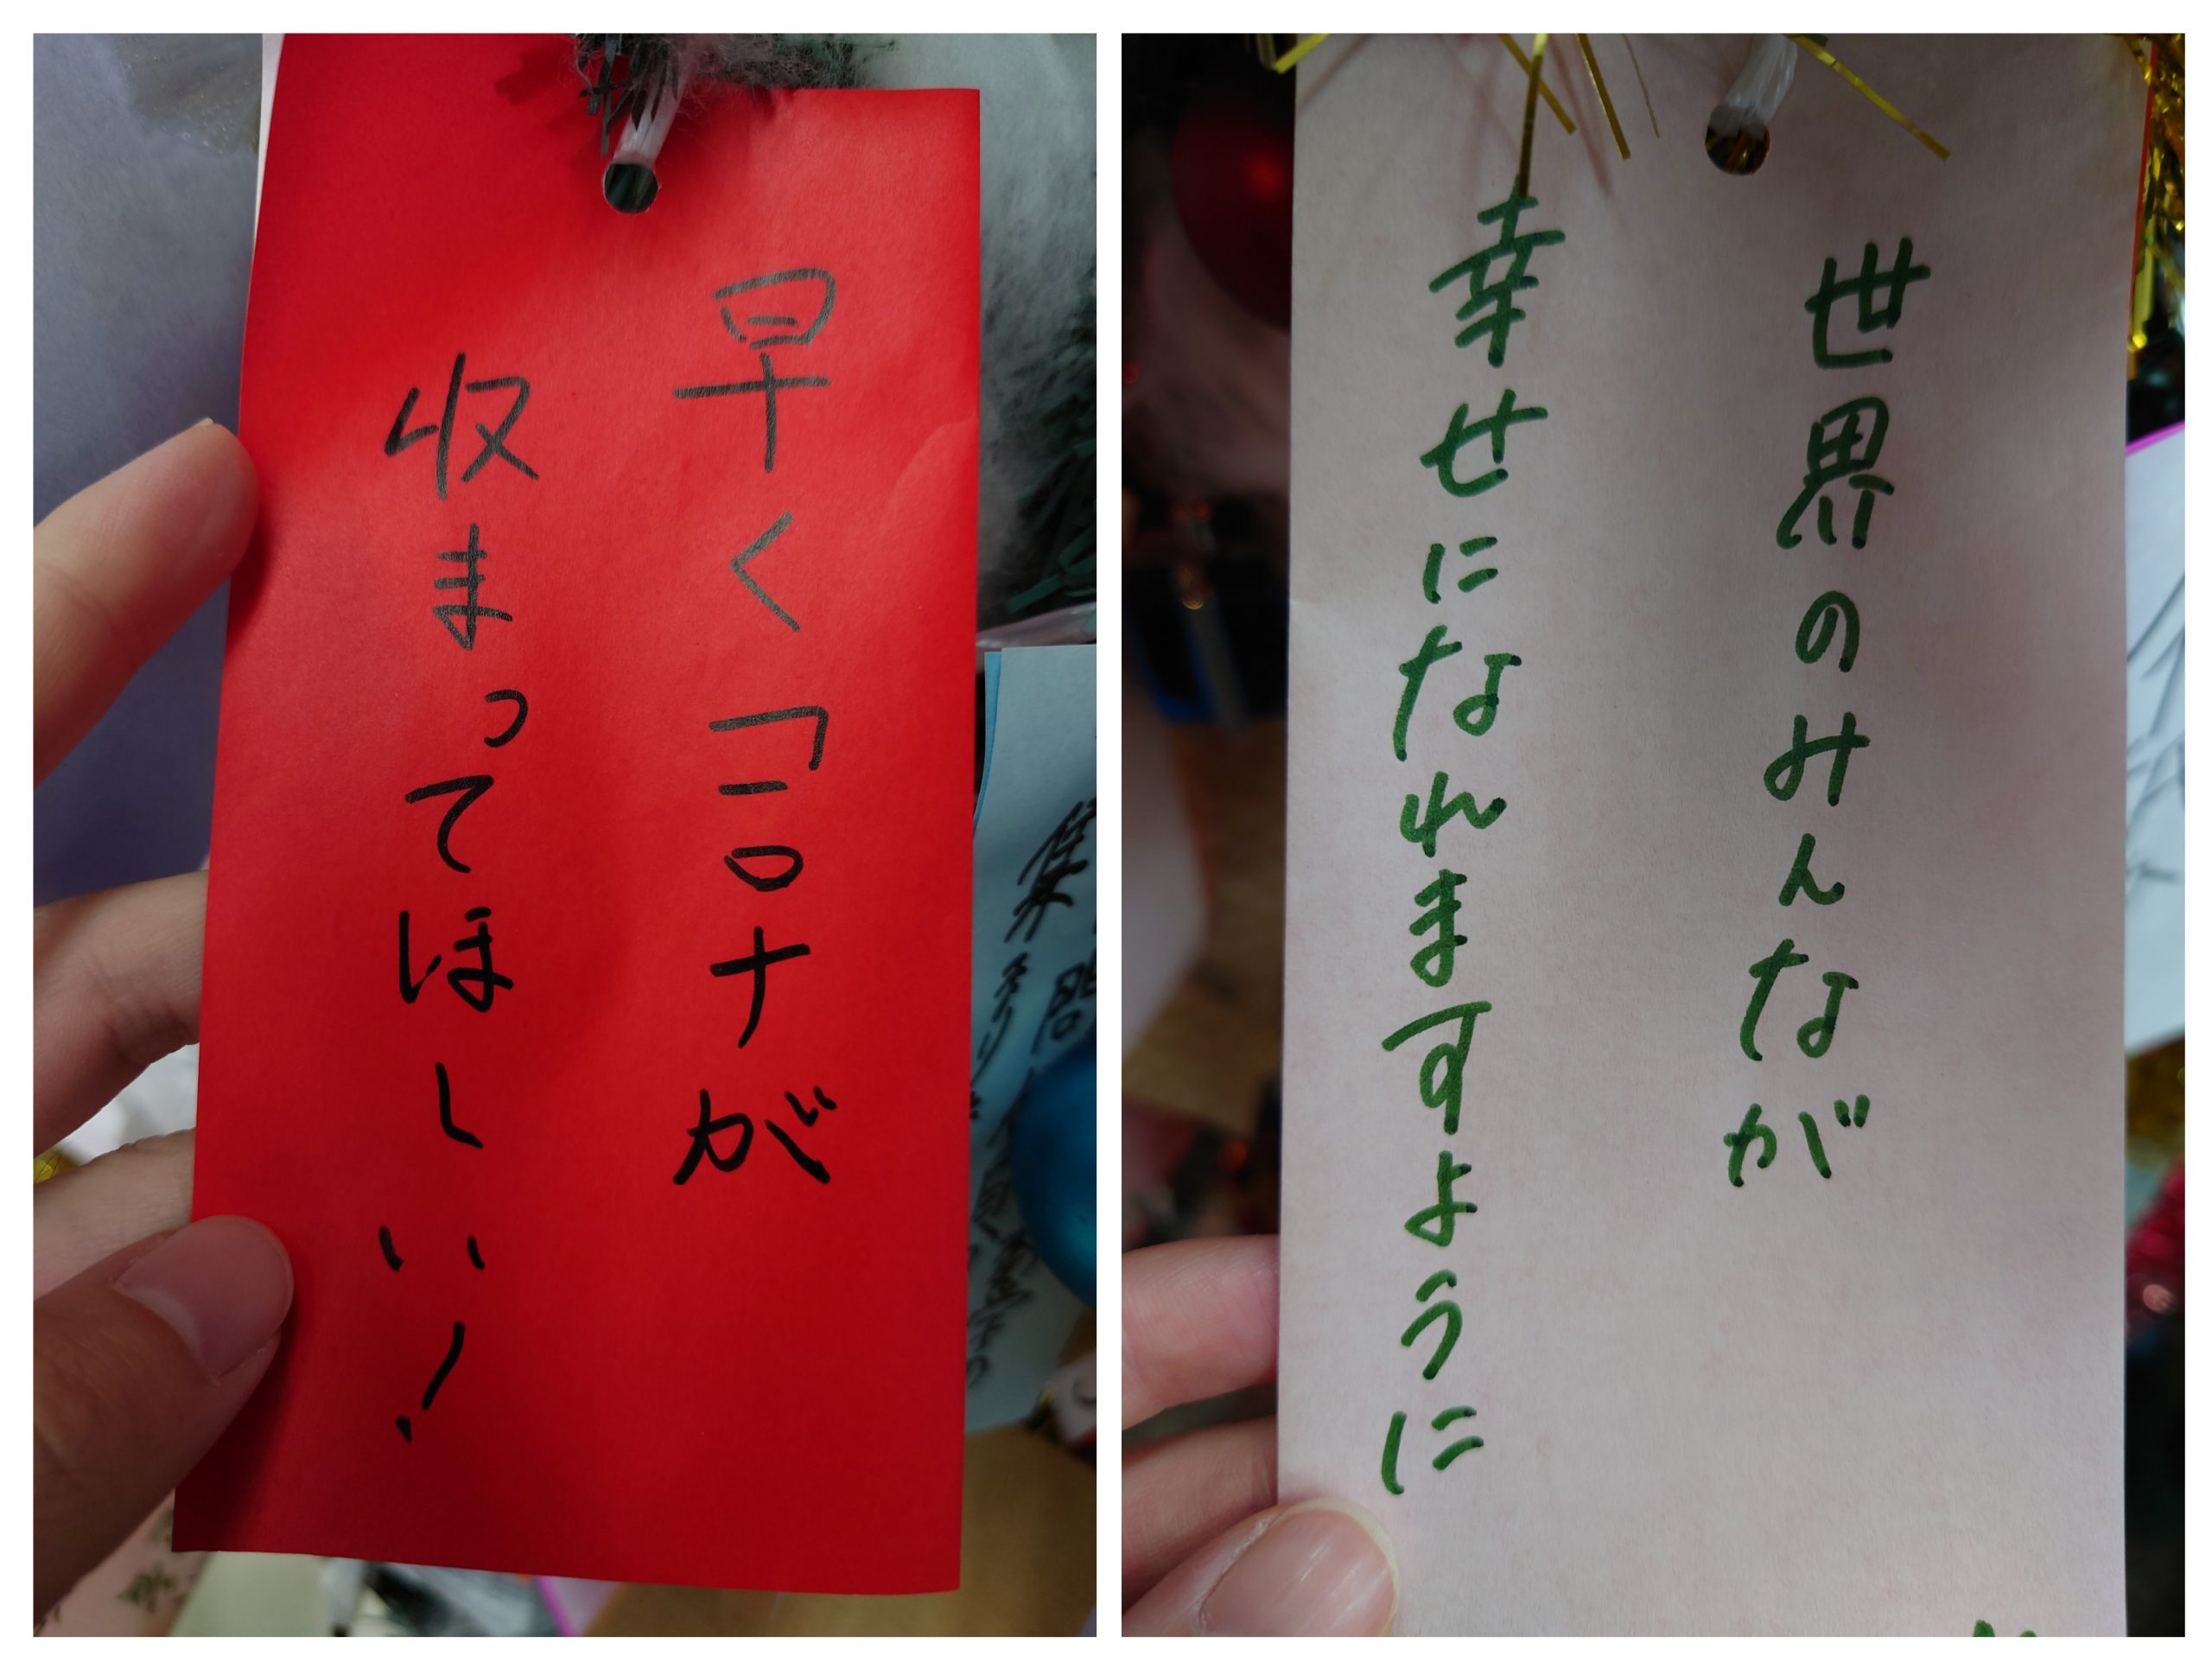 早くコロナが
収まってほしい!
世界のみんなが
幸せになれますように